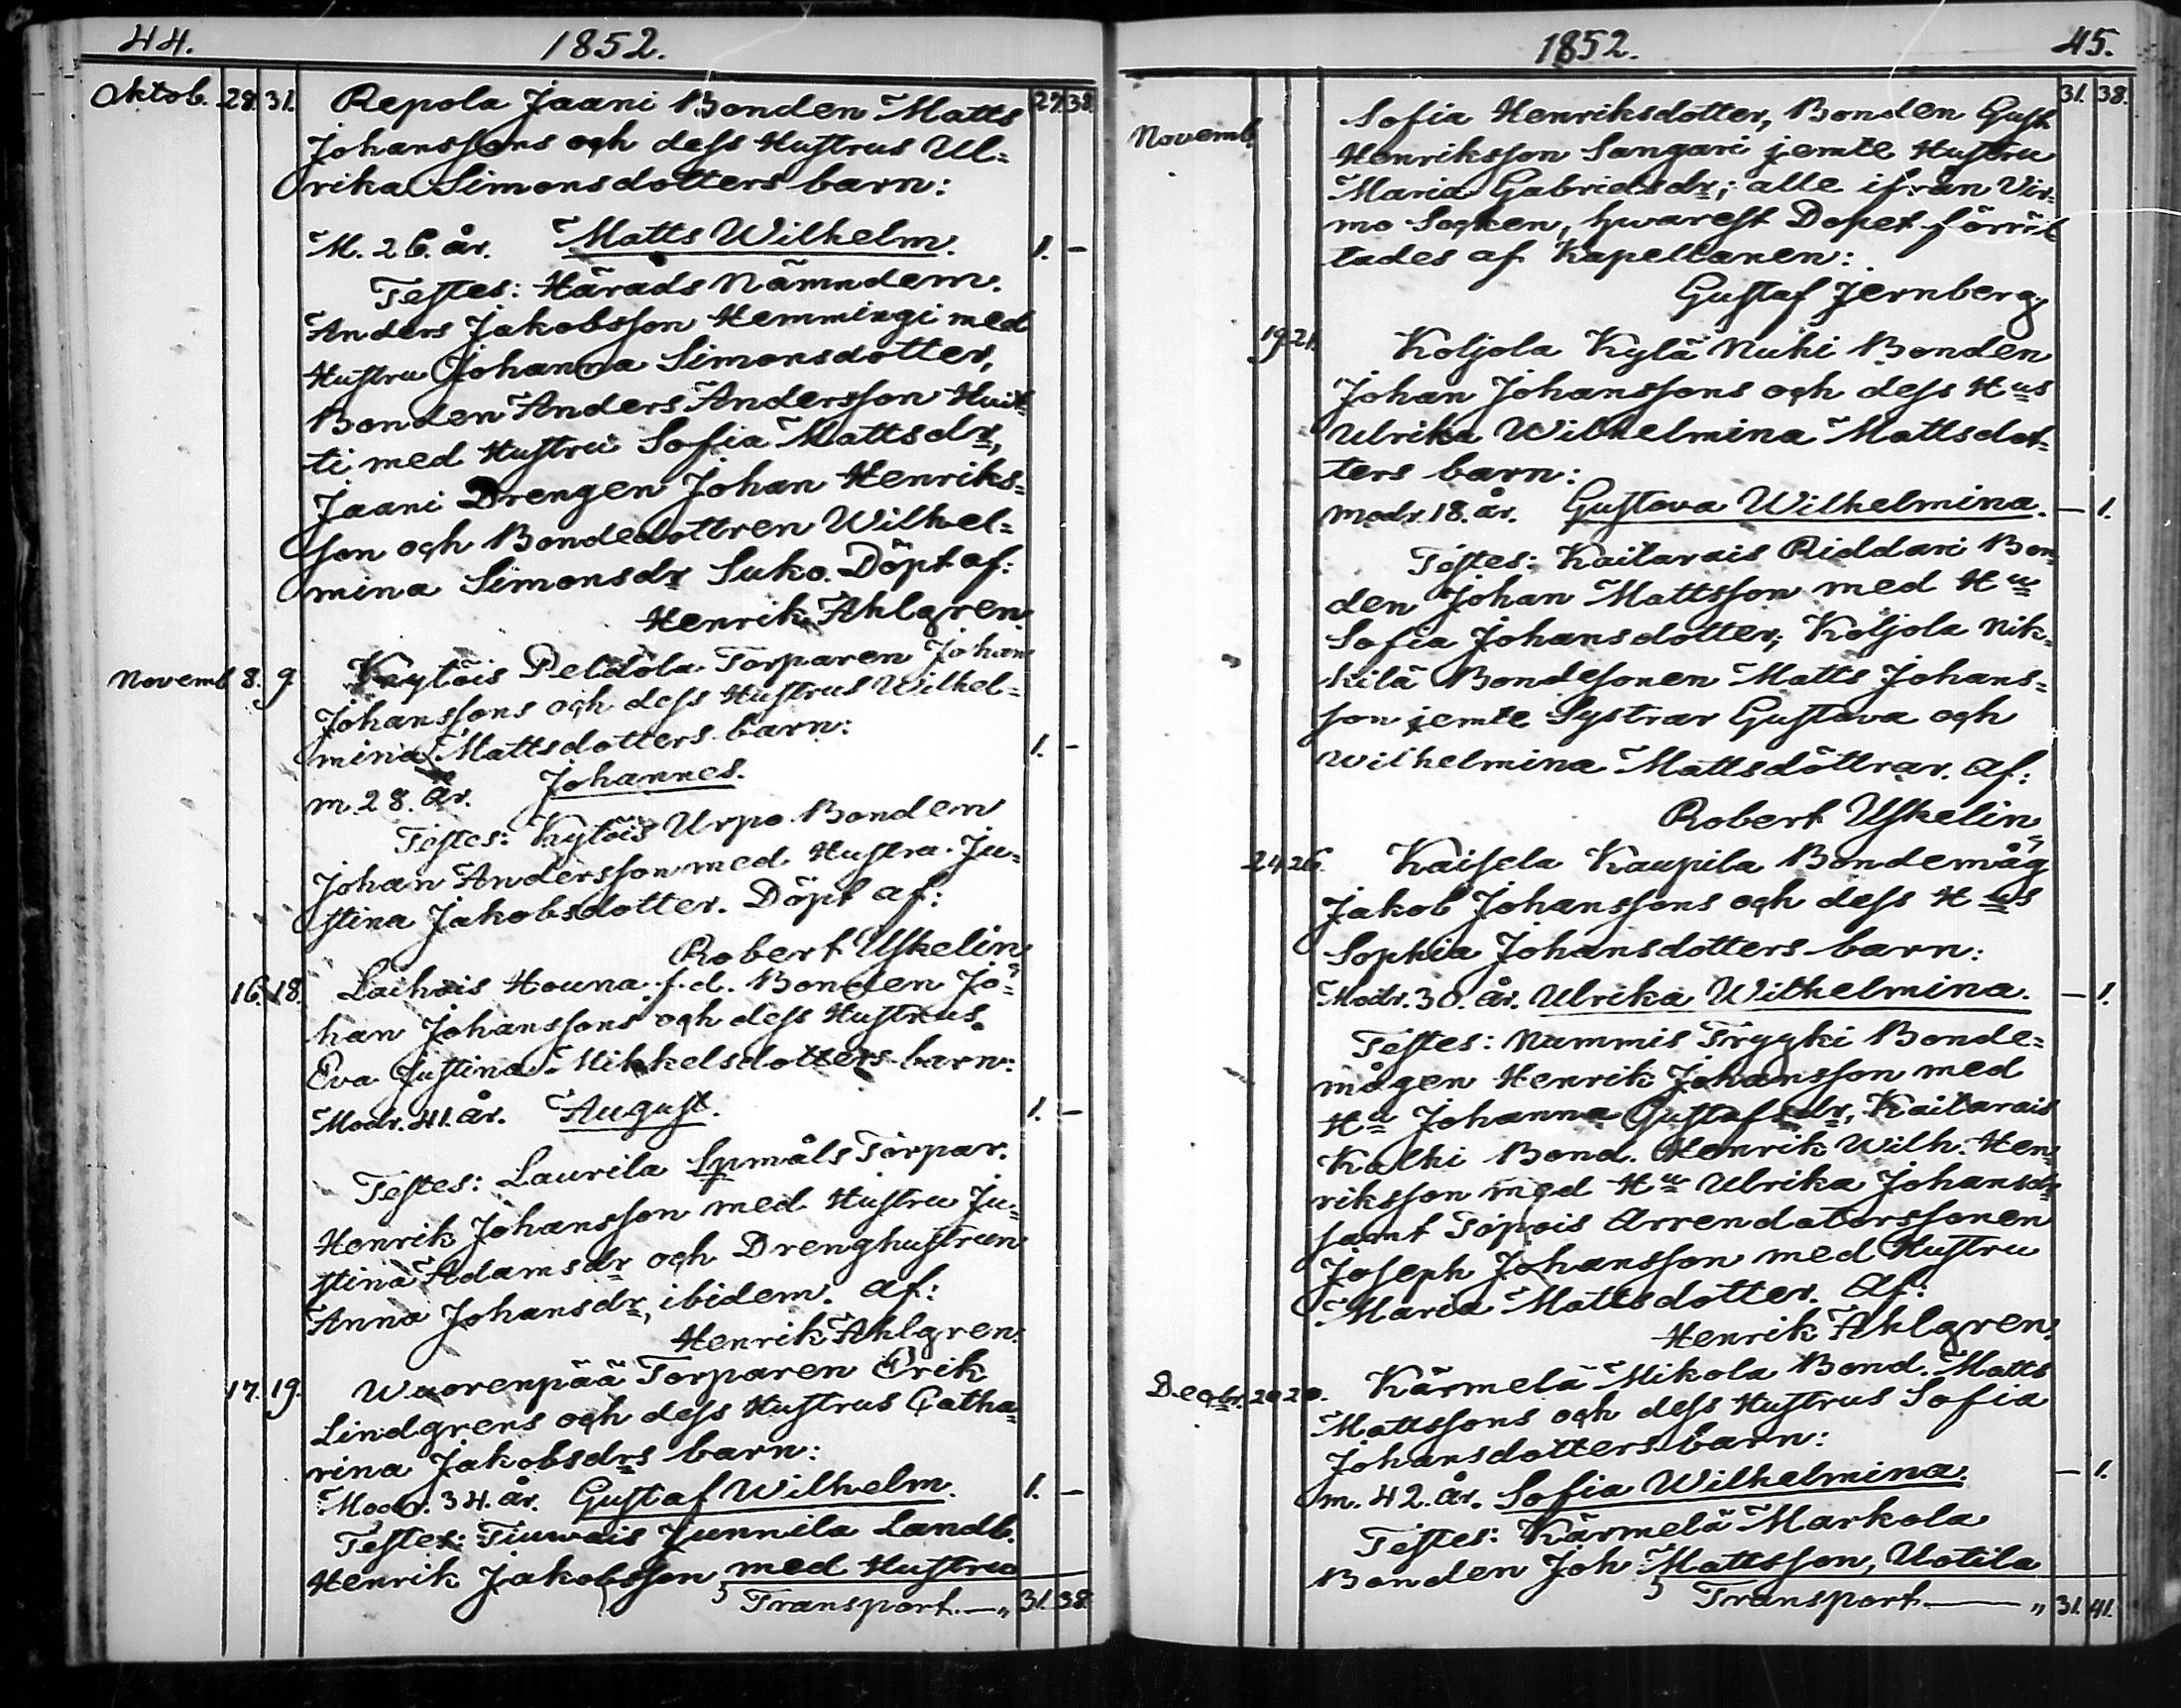 44. 1852.
Oktob. 28. 31. Repola Jaani Bonden Matts 27. 38.
Johanssons och dess Hustrus Ul=
rika Simonsdotters barn:
M. 26. år. Matts Wilhelm. 1. -
Testes: Härads Nämndem.
Anders Jakobsson Hemmingi med
Hustru Johanna Simonsdotter,
Bonden Anders Andersson Huit=
ti med Hustru Sofia Mattsdr,
Jaani Drengen Johan Henriks=
son och Bondedottren Wilhel=
mina Simonsdr Suko. Döpt af:
Henrik Ahlgren.
Novemb 8. 9. Keylöis Peldola Torparen Johan
Johanssons och dess Hustrus Wilhel=
mina Mattsdotters barn: 1. -
m. 28. år. Johannes.
Testes: Kylöis Urpo Bonden
Johan Andersson med Hustru Ju=
stina Jakobsdotter. Döpt af:
Robert Uskelin
16. 18. Laihois Houna f.d. Bonden Jo=
han Johanssons och dess Hustrus
Eva Justina Mikkelsdotters barn:
Modr. 41. år. August. 1. -
Testes: Laurila Spmåls Torpar.
Henrik Johansson med Hustru Ju=
stina Adamsdr och Drenghustrun
Anna Johansdr, ibidem. af:
Henrik Ahlgren.
17. 19. Wuorenpää Torparen Erik
Lindgrens och dess Hustrus Catha=
rina Jakobsdrs barn:
Modr. 34. år. Gustaf Wilhelm. 1. -
Testes: Tiuwais Junnila Landb.
Henrik Jakobsson med Hustru
Transport — „ 31. 38.
1852. 45.
31. 38.
Novemb Sofia Henriksdotter, Bonden Gust
Henriksson Sangari jemte Hustru
Maria Gabrielsdr; alle ifrån Vir=
mo Socken, hwarest Dopet förrät
tades af Kapellanen:
Gustaf Jernberg
19. 21. Koljola Kylä Nuhi Bonden
Johan Johanssons och dess Hus
Ulrika Wilhelmina Mattsdot=
ters barn:
Modr. 18. år. Gustava Wilhelmina. — 1.
Testes: Kaitarais Riddari Bon=
den Johan Mattsson med Hu
Sofia Johansdotter, Koljola Nik=
kilä Bondesonen Matts Johans=
son jemte Systrar Gustava och
Wilhelmina Mattsdöttrar. af:
Robert Uskelin
24. 26. Kaisela Kaupila Bondemåg
Jakob Johanssons och dess Hus
Sophia Johansdotters barn:
Modr. 30. år. Ulrika Wilhelmina. — 1.
Testes: Nummis Tryyki Bonde=
mågen Henrik Johansson med
Hu Johanna Gustafsdr, Kaitarais
Kalhi Bond. Henrik Wilh. Hen=
riksson med Hu Ulrika Johansdr
samt Töpois Arrendatorssonen
Joseph Johansson med Hustru
Maria Mattsdotter. Af:
Henrik Ahlgren.
Decbr. 20 20. Kärmelä Mikola Bond. Matts
Mattssons och dess Hustrus Sofia
Johansdotters barn:
m. 42. år. Sofia Wilhelmina. — 1.
Testes: Kärmelä Markola
Bonden Joh Mattsson, Uotila
Transport — „ 31. 41.